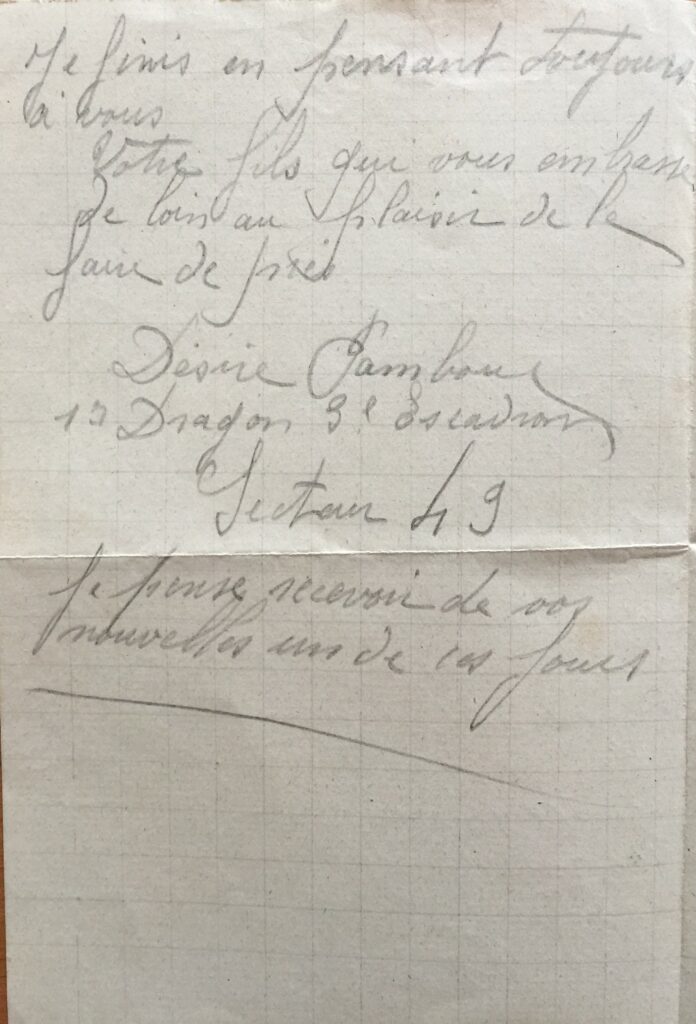 Je finis en pensant toujours
à vous
Votre fils qui vous embrasse
de loin au plaisir de le
faire de près
Désire
13 Dragon 3e Escadron
Secteur 49
Je pense recevoir de vos
nouvelles un de ces jours